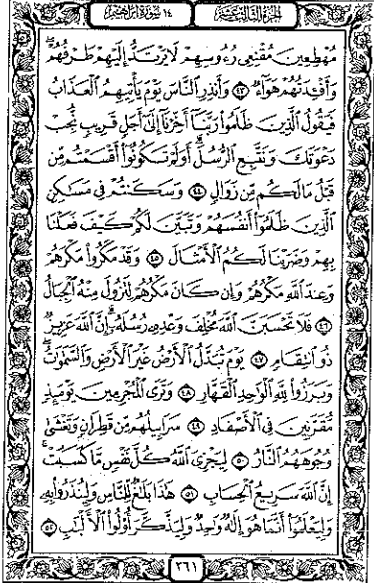 الجزء الثالث عشر
١٤ سورة إبراهيم
مُهْطِعِينَ مُقْنِعِي رُءُوسِهِمْ لَا يَرْتَدُّ إِلَيْهِمْ طَرْفُهُمْ
وَأَفْـِٔدَتُهُمْ هَوَآءٌ ۝٤٣ وَأَنذِرِ ٱلنَّاسَ يَوْمَ يَأْتِيهِمُ ٱلْعَذَابُ
فَيَقُولُ ٱلَّذِينَ ظَلَمُوا۟ رَبَّنَآ أَخِّرْنَآ إِلَىٰٓ أَجَلٍ قَرِيبٍ نُّجِبْ
دَعْوَتَكَ وَنَتَّبِعِ ٱلرُّسُلَ ۗ أَوَلَمْ تَكُونُوٓا۟ أَقْسَمْتُم مِّن
قَبْلُ مَا لَكُم مِّن زَوَالٍ ۝٤٤ وَسَكَنتُمْ فِى مَسَـٰكِنِ
ٱلَّذِينَ ظَلَمُوٓا۟ أَنفُسَهُمْ وَتَبَيَّنَ لَكُمْ كَيْفَ فَعَلْنَا
بِهِمْ وَضَرَبْنَا لَكُمُ ٱلْأَمْثَالَ ۝٤٥ وَقَدْ مَكَرُوا۟ مَكْرَهُمْ
وَعِندَ ٱللَّهِ مَكْرُهُمْ وَإِن كَانَ مَكْرُهُمْ لِتَزُولَ مِنْهُ ٱلْجِبَالُ
۝٤٦ فَلَا تَحْسَبَنَّ ٱللَّهَ مُخْلِفَ وَعْدِهِۦ رُسُلَهُۥٓ ۗ إِنَّ ٱللَّهَ عَزِيزٌ
ذُو ٱنتِقَامٍ ۝٤٧ يَوْمَ تُبَدَّلُ ٱلْأَرْضُ غَيْرَ ٱلْأَرْضِ وَٱلسَّمَـٰوَٰتُ ۖ
وَبَرَزُوا۟ لِلَّهِ ٱلْوَٰحِدِ ٱلْقَهَّارِ ۝٤٨ وَتَرَى ٱلْمُجْرِمِينَ يَوْمَئِذٍ
مُّقَرَّنِينَ فِى ٱلْأَصْفَادِ ۝٤٩ سَرَابِيلُهُم مِّن قَطِرَانٍ وَتَغْشَىٰ
وُجُوهَهُمُ ٱلنَّارُ ۝٥٠ لِيَجْزِىَ ٱللَّهُ كُلَّ نَفْسٍ مَّا كَسَبَتْ ۚ
إِنَّ ٱللَّهَ سَرِيعُ ٱلْحِسَابِ ۝٥١ هَـٰذَا بَلَـٰغٌ لِّلنَّاسِ وَلِيُنذَرُوا۟ بِهِۦ
وَلِيَعْلَمُوٓا۟ أَنَّمَا هُوَ إِلَـٰهٌ وَٰحِدٌ وَلِيَذَّكَّرَ أُو۟لُوا۟ ٱلْأَلْبَـٰبِ ۝٥٢
٢٦١